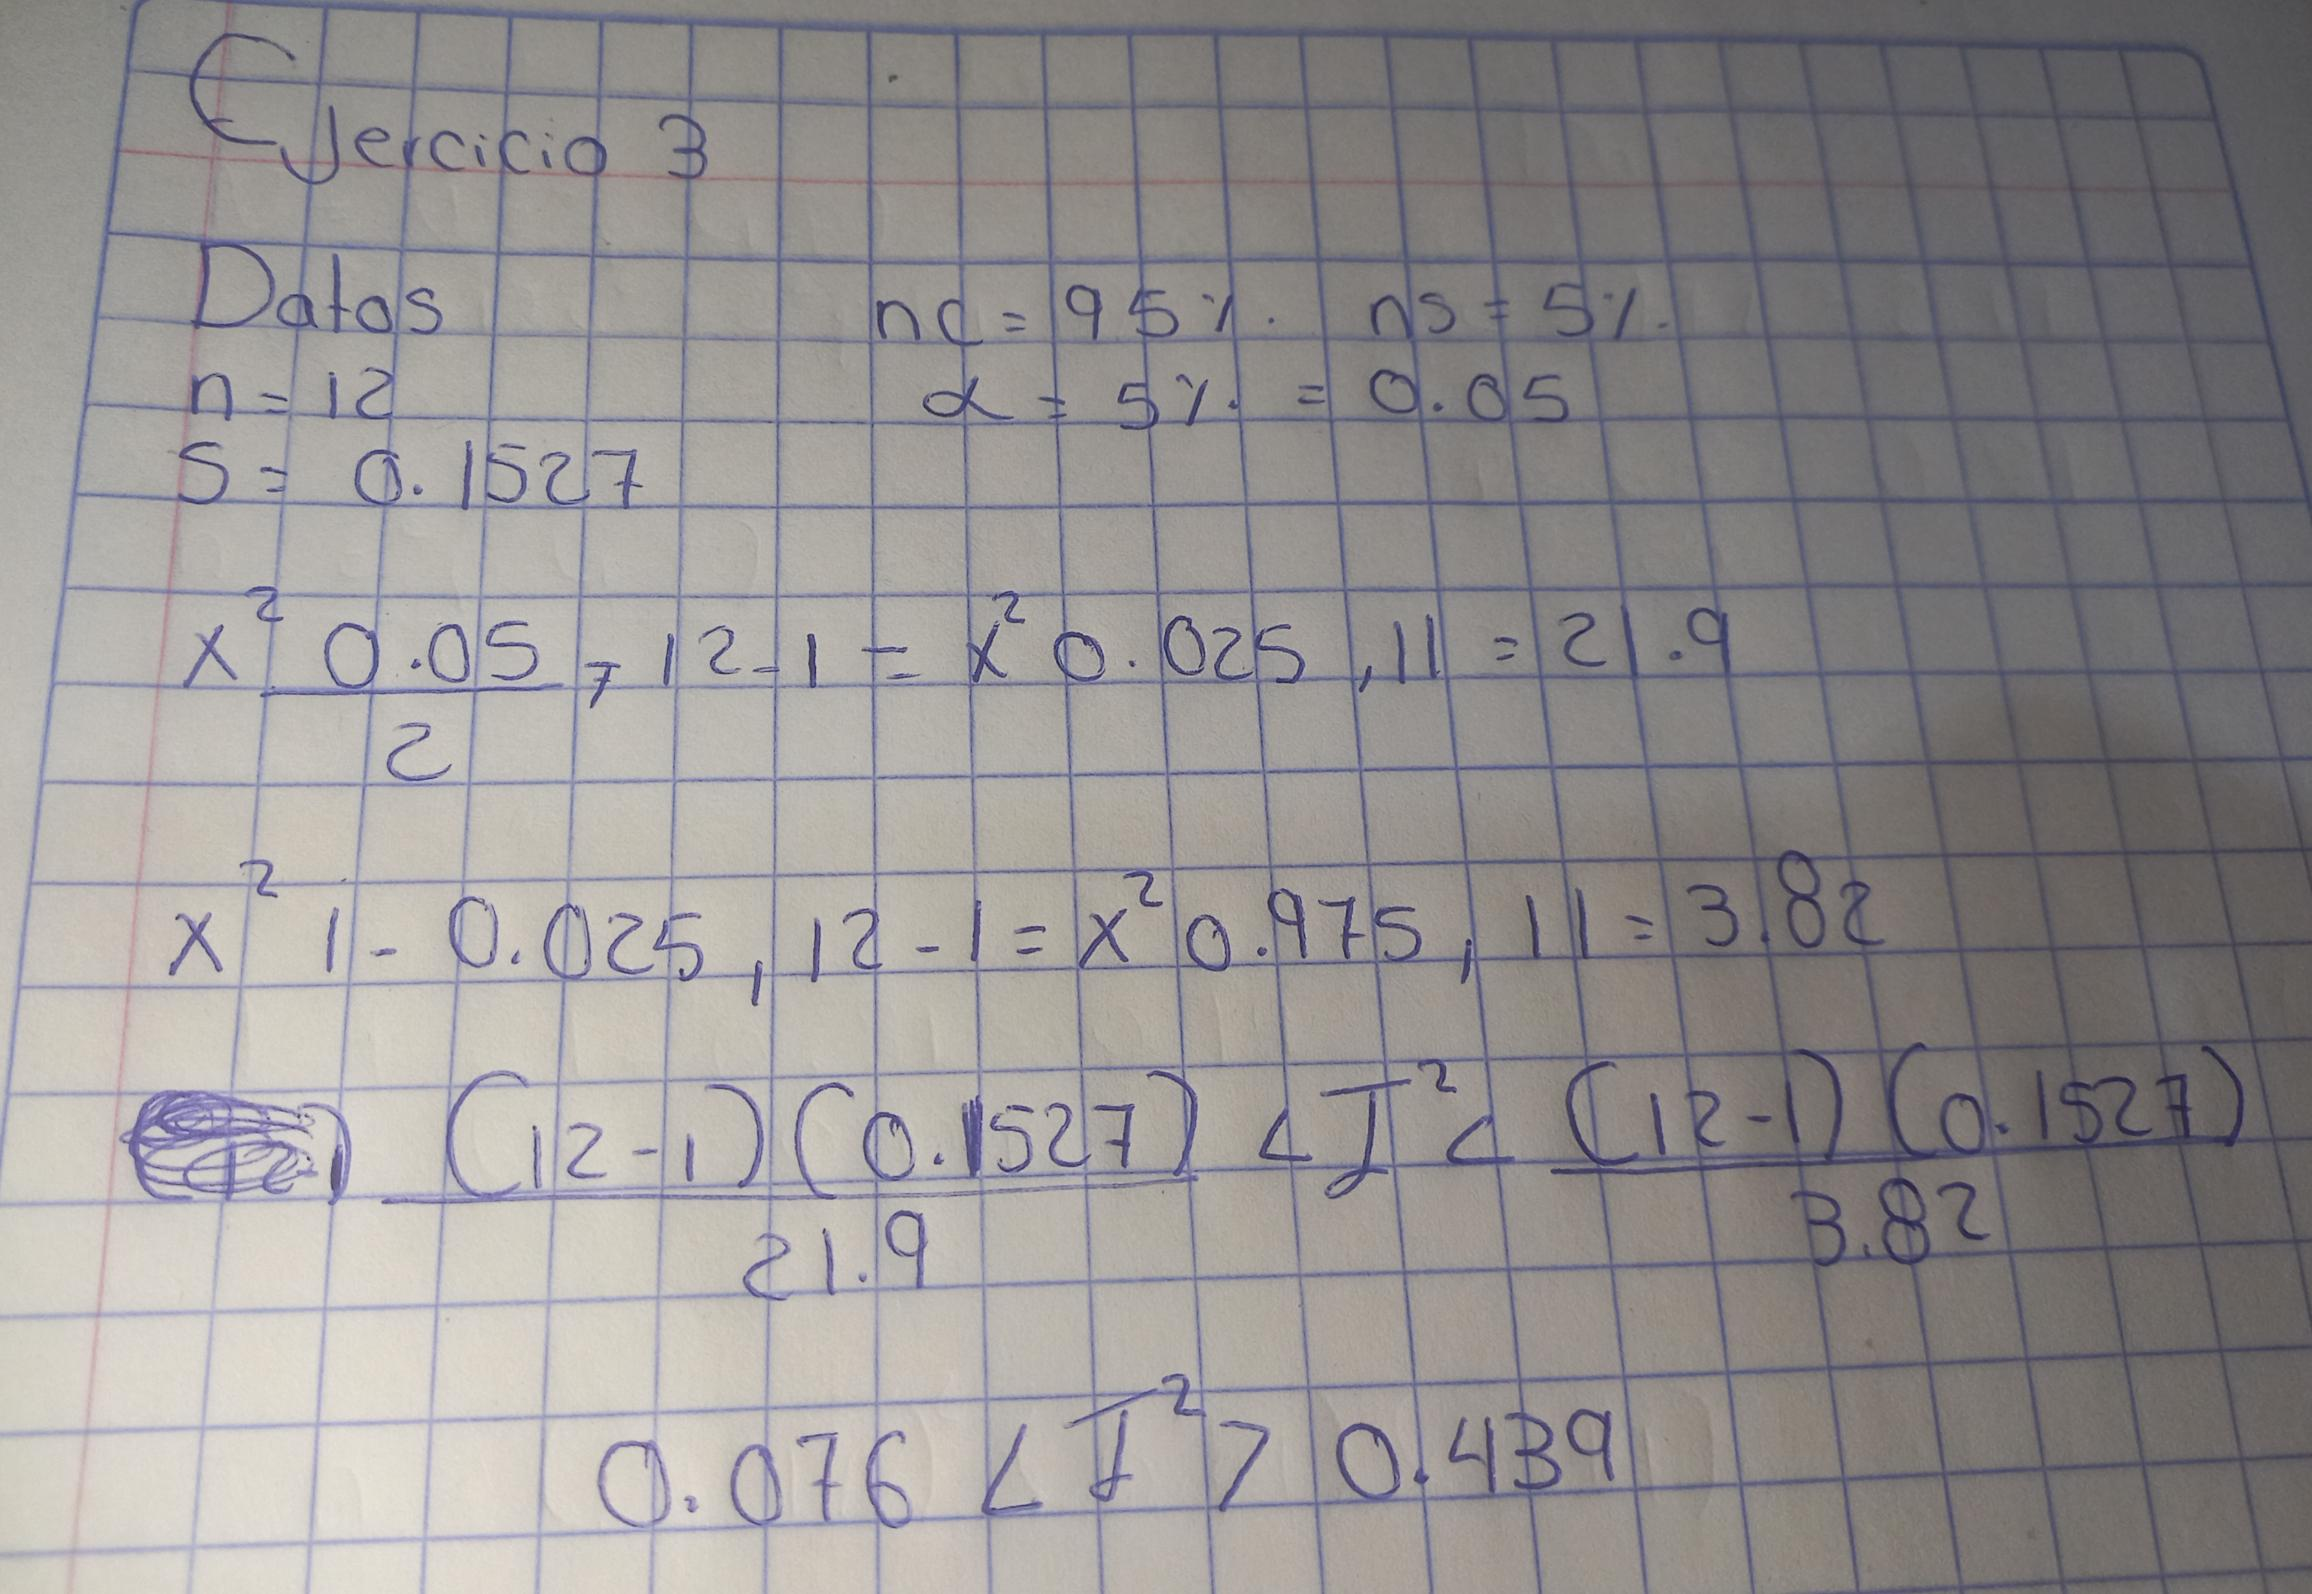 Ejercicio 3
Datos nc = 95% ns = 5%
n = 12 α = 5% = 0.05
S = 0.1527
x² 0.05/2, 12-1 = x² 0.025, 11 = 21.9
x² 1-0.025, 12-1 = x² 0.975, 11 = 3.82
(12-1)(0.1527)/21.9 < σ² < (12-1)(0.1527)/3.82
0.076 < σ² > 0.439